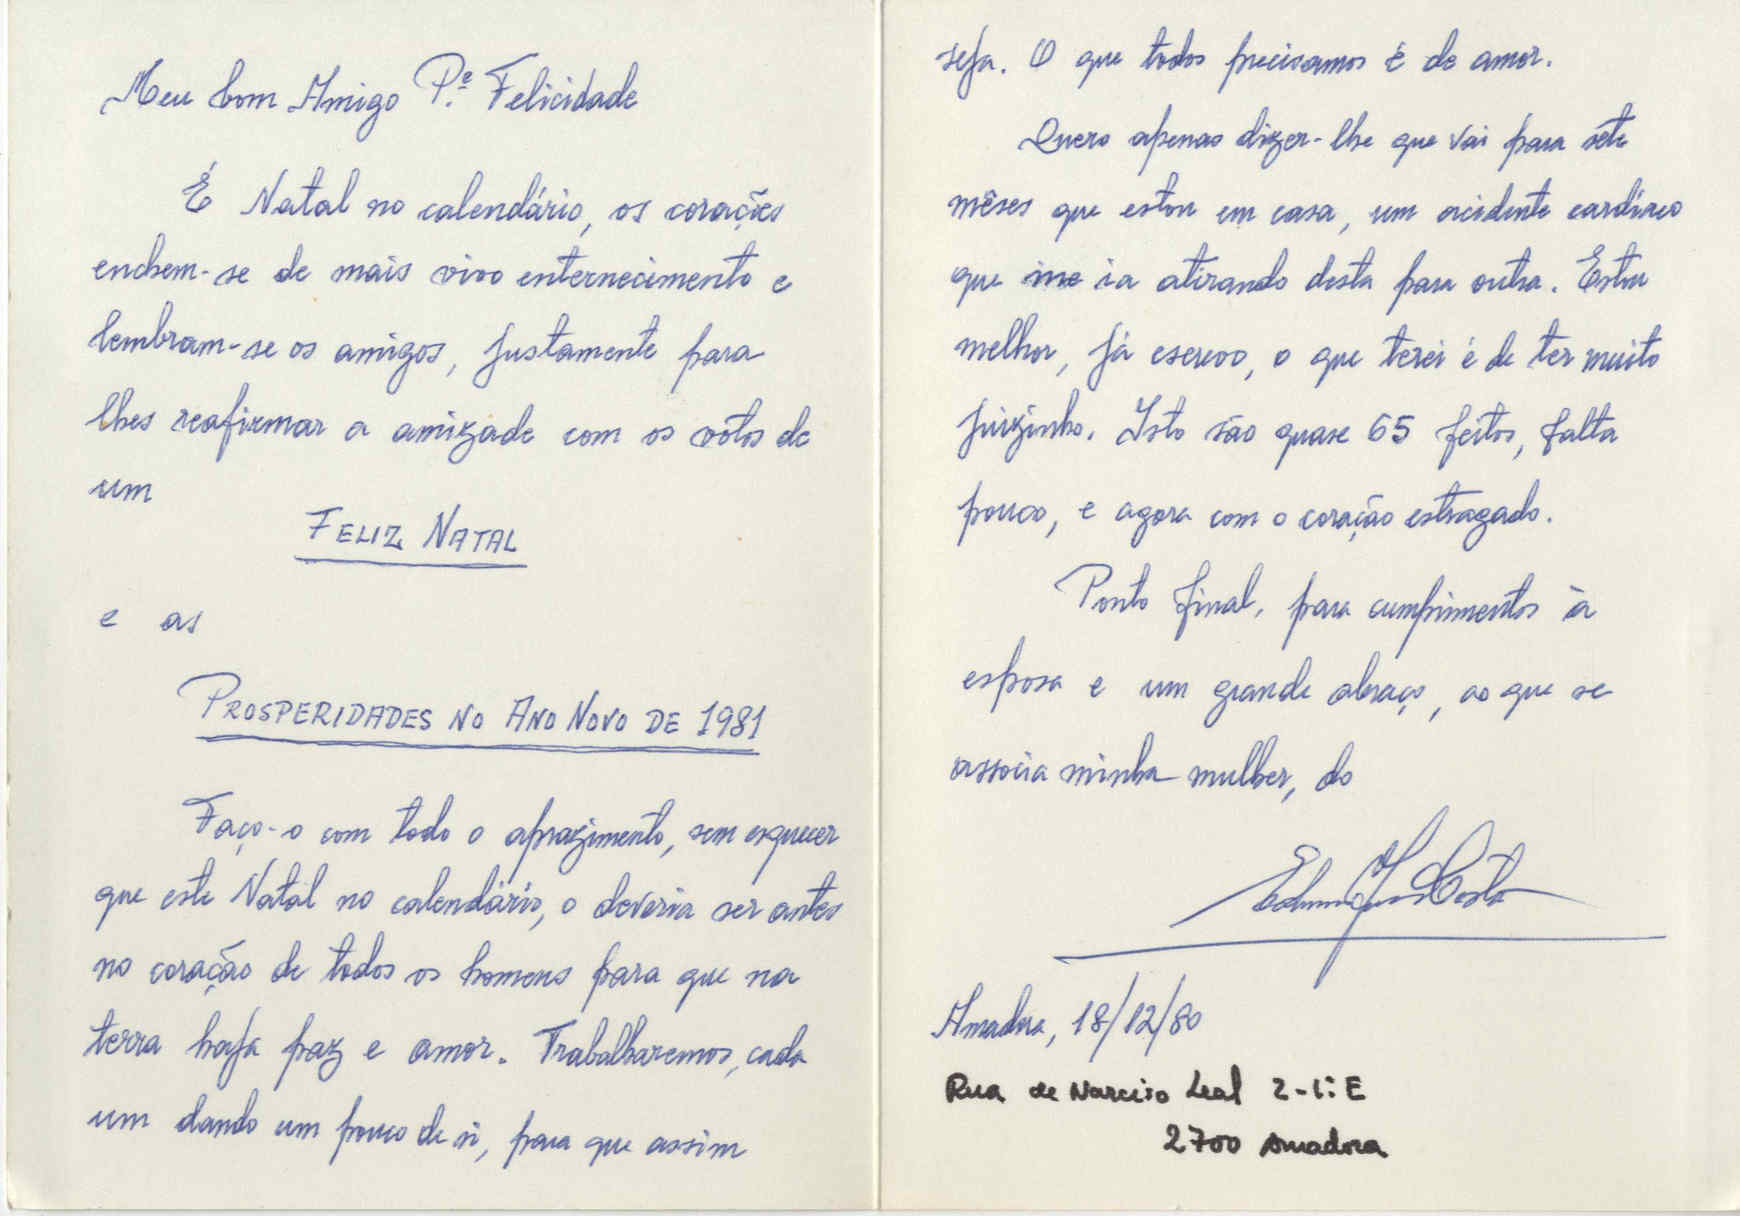 Meu bom Amigo P.e Felicidade
É Natal no calendário, os corações
enchem-se de mais vivo enternecimento e
lembram-se os amigos, justamente para
lhes reafirmar a amizade com os vótos de
um
FELIZ NATAL
e as
PROSPERIDADES NO ANO NOVO DE 1981
Faço-o com todo o aprazimento, sem esquecer
que este Natal no calendário, o deveria ser antes
no coração de todos os homens para que na
terra haja paz e amor. Trabalharemos, cada
um dando um pouco de si, para que assim
seja. O que todos precisamos é de amor.
Quero apenas dizer-lhe que vai para séte
mêses que estou em casa, um acidente cardíaco
que me ia atirando desta para outra. Estou
melhor, já escrevo, o que terei é de ter muito
juizinho. Isto são quase 65 feitos, falta
pouco, e agora com o coração estragado.
Ponto final, para cumprimentos à
esposa e um grande abraço, ao que se
associa minha mulher, do
Costa
Amadora, 18/12/80
Rua de Narciso Leal 2-1.º E
2700 Amadora